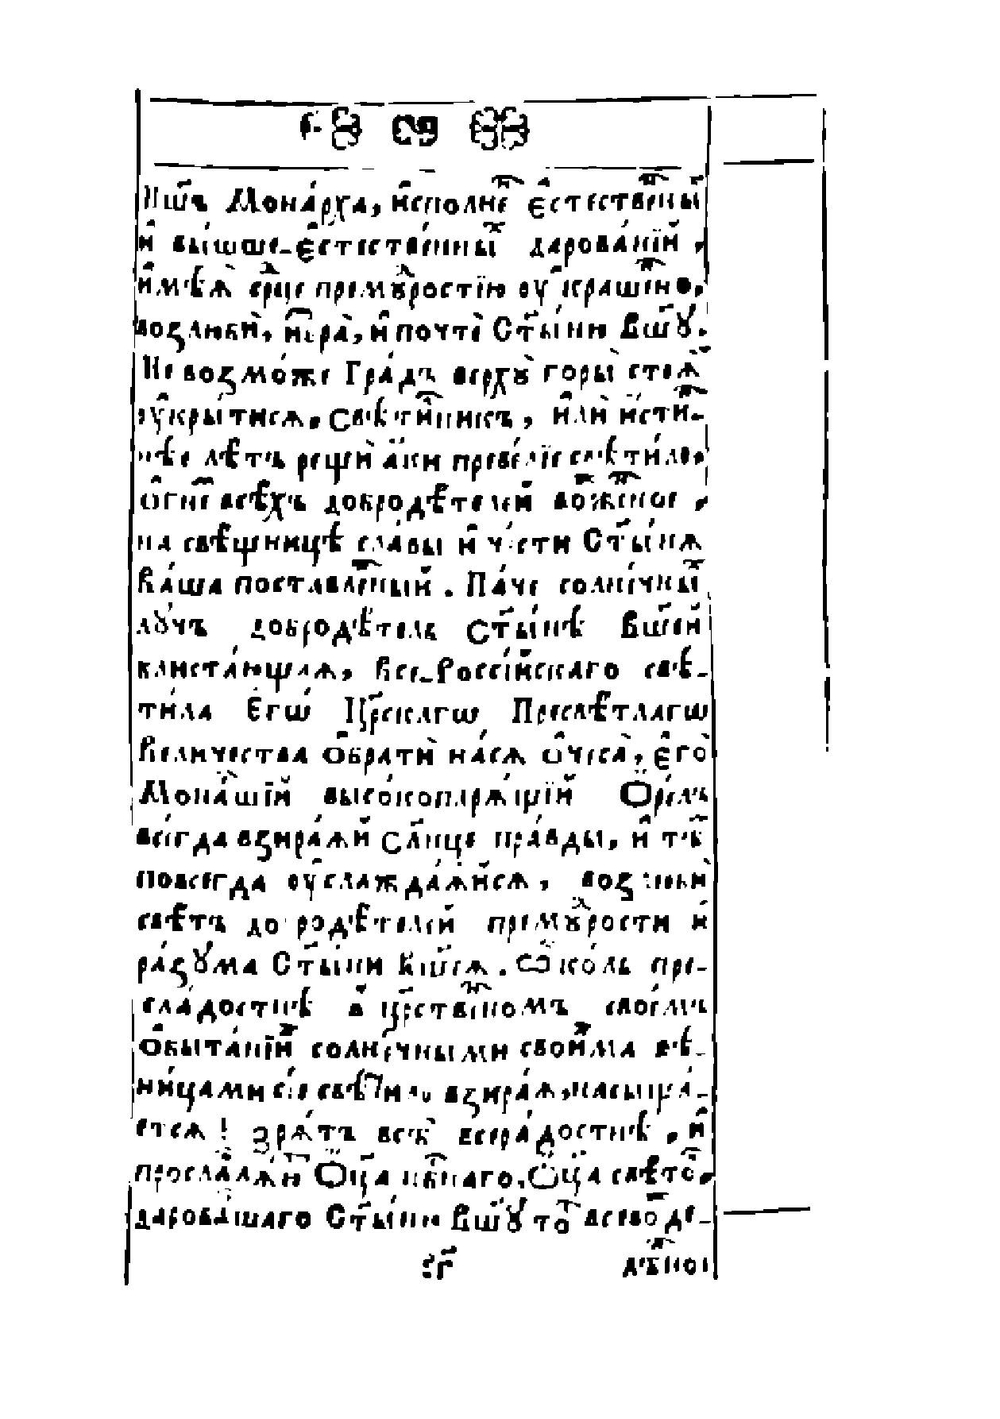 Нш҃ъ Мона́рха, и҆спо́лнеⷩ҇ є҆сте́стве́нныⷯ
и҆ вы́шше-є҆стестве́нныⷯ дарова́нїй,
и҆мѣ́ѧ се́рⷣце премⷣꙋ́ростїю ᲂу҆кра́шеⷩ҇но,
возлюбѝ, и҆збра̀, и҆ почтѐ Ст҃ы́ни Вш҃ꙋ.
Не возмо́же Гра́дъ верхꙋ̀ горы̀ стоѧ̀
ᲂу҆кры́тисѧ, свѣти́лникъ, и҆лѝ и҆́стиⷩ҇-
нѣе лѣ́ть рещѝ а҆́ки преве́лїе свѣти́ло,
ѻ҆гне́мъ всѣ́хъ добродѣ́телей возже́ное,
на свѣ́щницѣ сла́вы и҆ че́сти Ст҃ы́нѧ
Ва́ша поставле́нный. Па́че со́лнечныⷯ
лꙋ́чъ добродѣ́тель Ст҃ы́нѣ Вш҃ей
блиста́ющаѧ, Все-Россі́йскаго свѣ-
ти́ла Є҆гѡ̀ Цр҃скагѡ Пресвѣ́тлагѡ
Вели́чества ѻ҆братѝ на сѧ̀ ѻ҆́чеса̀, є҆гѡ̀
Мона́ршїй высо́копарѧ́щїй Ѻ҆ре́лъ
всегда̀ взира́ѧй Сл҃нце пра́вды, и҆ тѣ́мъ
повсегда̀ ᲂу҆слажда́ѧйсѧ, возлюбѝ
свѣ́тъ добродѣ́телей премⷣꙋ́рости и҆
ра́зꙋма Ст҃ы́ни Вш҃еѧ. Ѽ ко́ль пре-
сла́достнѣ в̾ цр҃ственномъ свое́мъ
ѻ҆бита́нїи со́лнечными свои́ма зѣ-
ни́цами сїѐ свѣти́ло взира́ѧ, насыща́-
етсѧ! зрѧ́тъ всѝ всера́достнѣ, и҆
прославлѧ́ютъ Ѻ҆ц҃а̀ нбⷭ҇наго, Ѻ҆ц҃а̀ свѣ́товъ,
дарова́вшаго Ст҃ы́ни Вш҃ꙋ то́ всево́зде-
г҃
лѣ́нное